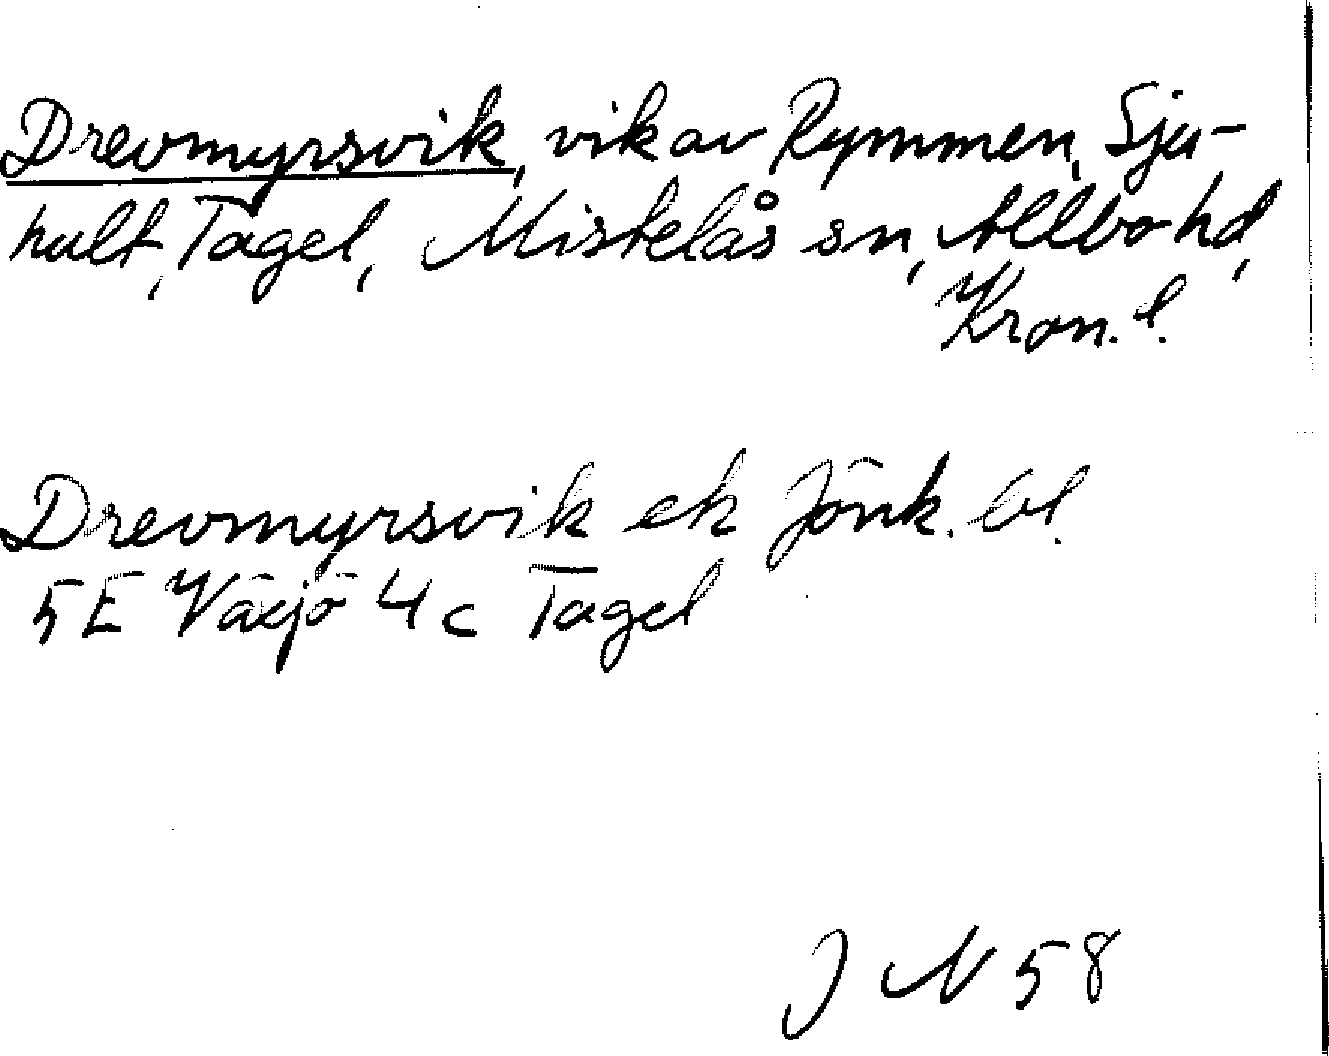 Drevmyrsvik, vik av Rymmen, Sju-
hult, Tagel, Mistelås sn, Allbo hd,
Kron. l.
Drevmyrsvik ek Jönk. bl.
5E Växjö 4c Tagel
J N 58